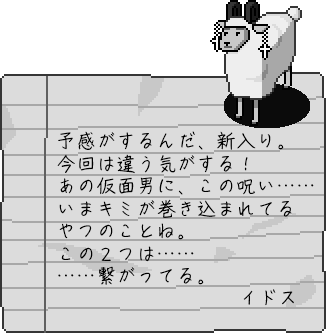 予感がするんだ、新入り。
今回は違う気がする！
あの仮面男に、この呪い……
いまキミが巻き込まれてる
やつのことね。
この２つは……
……繋がってる。
イドス